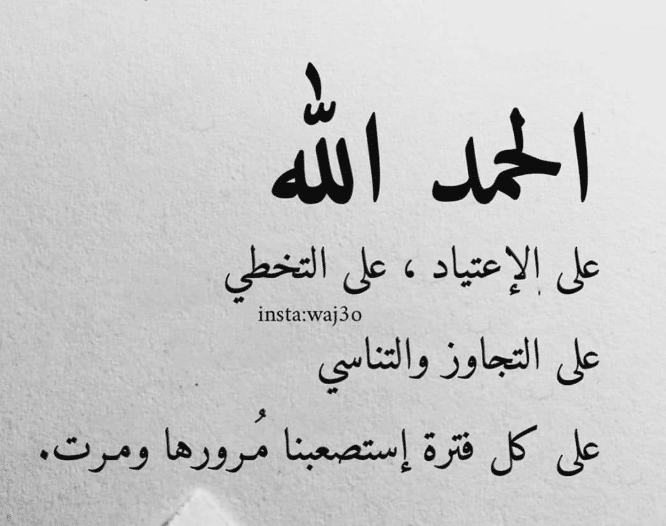 الحمد الله
على الإعتياد ، على التخطي
insta:waj3o
على التجاوز والتناسي
على كل فترة إستصعبنا مُرورها ومرت.